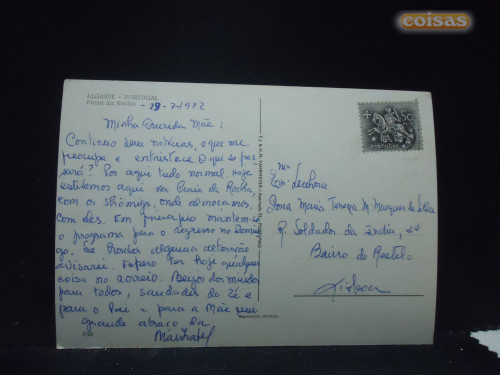 coisas
ALGARVE - PORTUGAL
Praia da Rocha
-19-7-1972
Minha Querida Mãe:
Continuo sem notícias, o que me
preocupa e entristece. O que se pas-
sará? Por aqui tudo normal. Hoje
estivemos aqui na Praia da Rocha,
com os onde almoçamos,
com eles. Em princípio mantem-se
o programa para o regresso no Domin-
go. Se houver alguma alteração
avisarei. Espero ter hoje qualquer
coisa no correio. Beijos dos miudos
para todos, saudades do Zé e
para o Pai e para a Mãe um
grande abraço da
50
PORTUGAL
Exª. Senhora
Dona Maria Teresa M. Marques da Silva
R. Soldados da India, 24
Bairro do Restelo
Lisboa